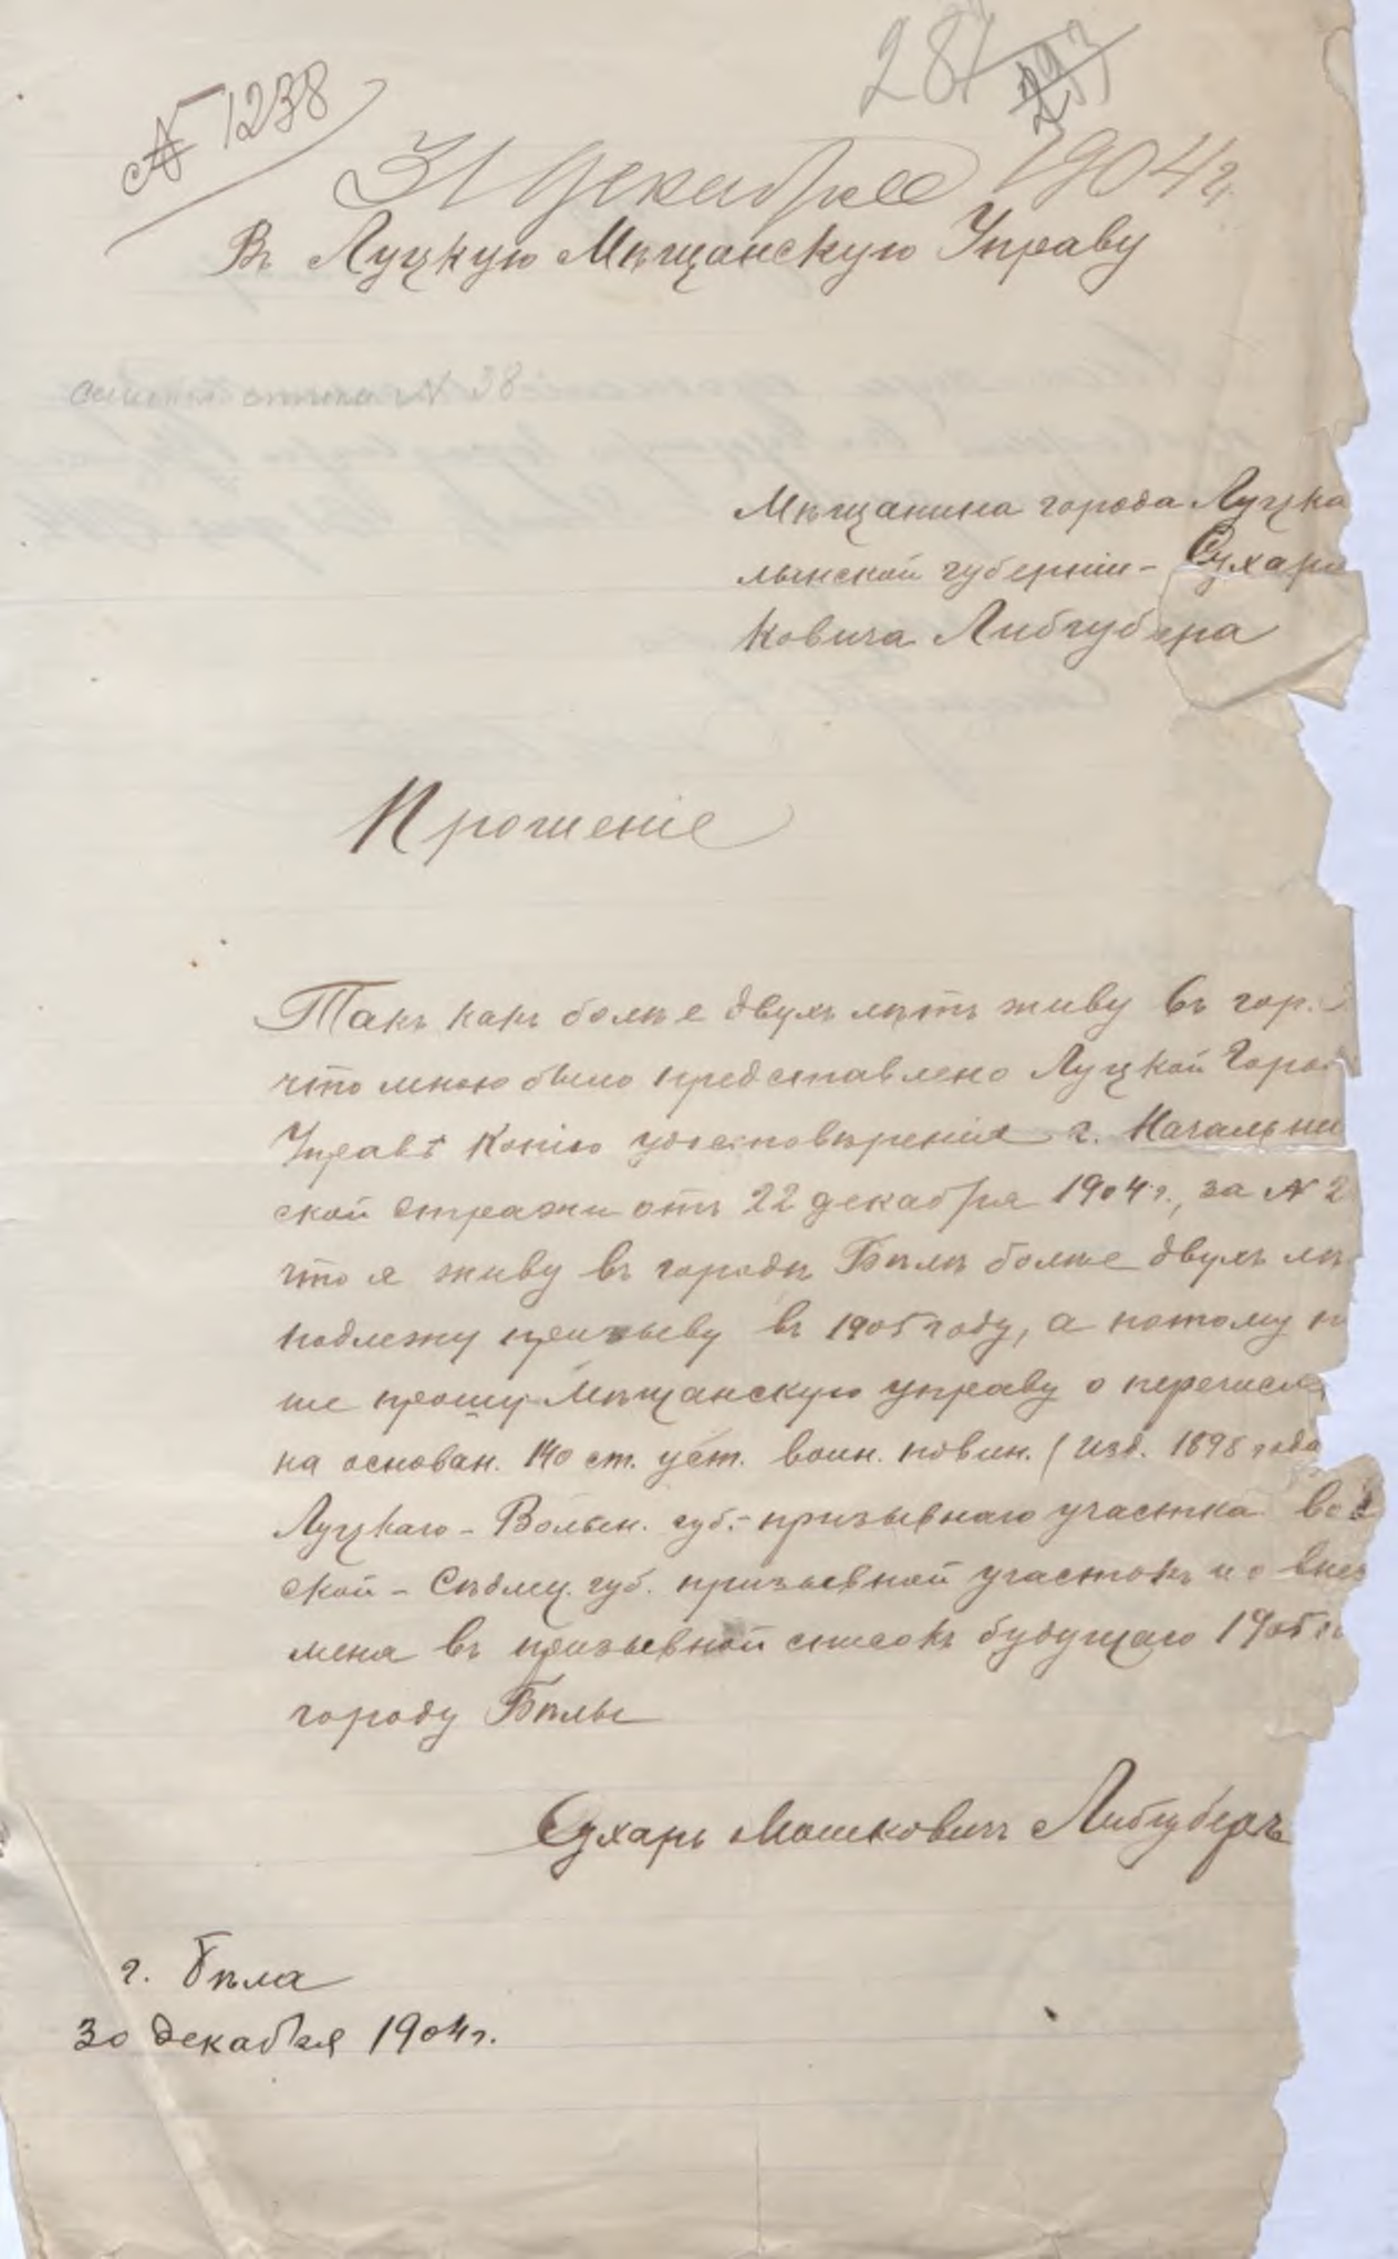 № 1238
287 293
31 Декабря 1904 г.
Въ Луцкую Мѣщанскую Управу
№ 38
Мѣщанина города Луцка
лынской губерніи - Сухаря
ковича Либгубера
Прошеніе
Такъ какъ болѣе двухъ лѣтъ живу въ гор.
что мною было представлено Луцкой Горо
Управѣ копію удостовѣренія г. Начальни
ской стражи отъ 22 декабря 1904 г., за № 2
что я живу въ городѣ Бѣлѣ болѣе двухъ лѣ
подлежу призыву въ 1905 году, а потому п
ше прошу Мѣщанскую управу о перечисл
на основан. 140 ст. уст. воин. повин. (изд. 1898 года
Луцкаго - Волын. губ. - призывнаго участка во
ской - Сѣдлец. губ. призывной участокъ и о внес
меня въ призывной списокъ будущаго 1905 г.
городу Бѣлы
Сухарь Мошковичъ Либгуберъ
г. Бѣла
30 декабря 1904 г.